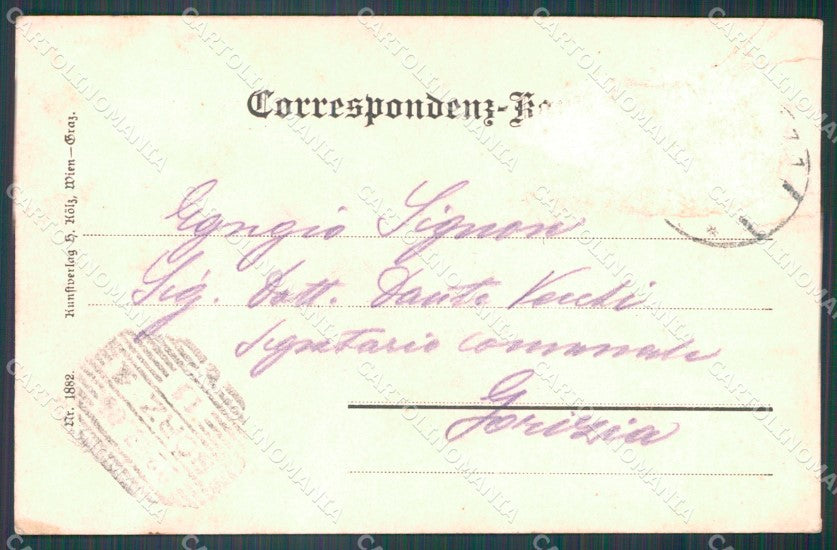 Correspondenz-Ka
Egregio Signor
Sig. Dott. Dante Venchi
Segretario comunale
Gorizia
Kunstverlag H. Kölz, Wien–Graz.
Nr. 1882.
CARTOLINOMANIA